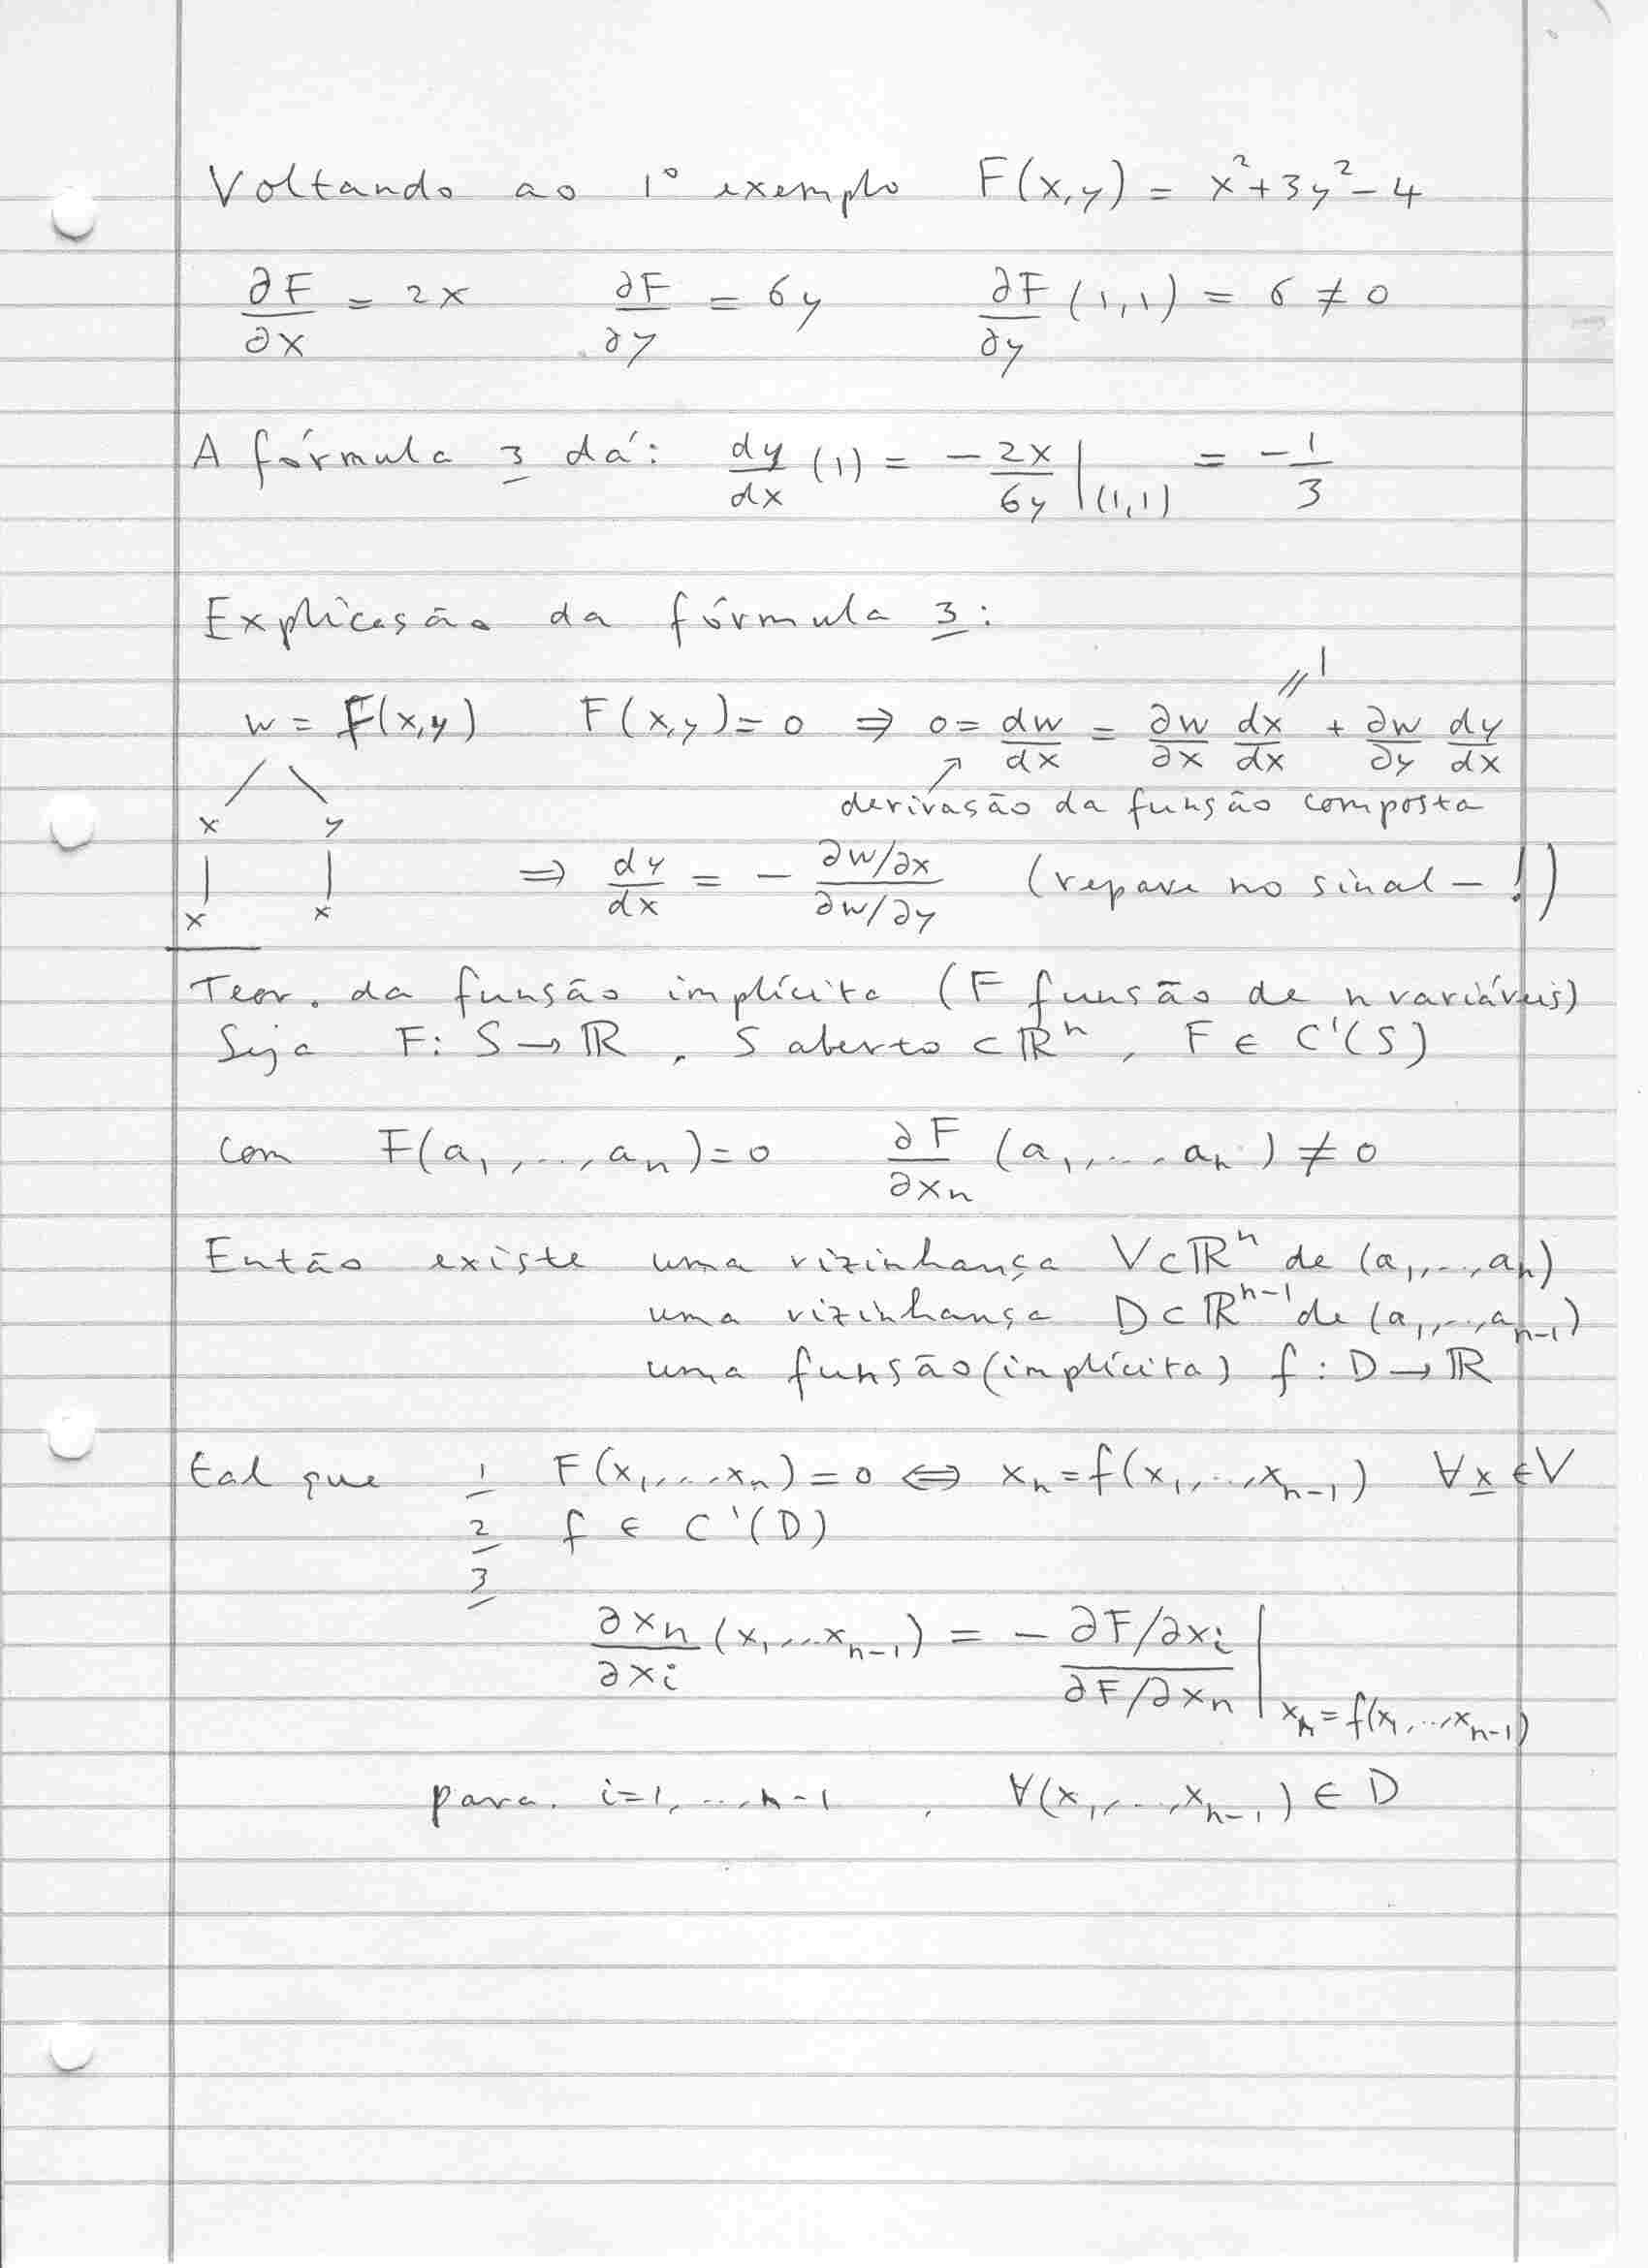 Voltando ao 1º exemplo F(x,y) = x²+3y²-4
∂F/∂x = 2x ∂F/∂y = 6y ∂F/∂y (1,1) = 6 ≠ 0
A fórmula 3 dá: dy/dx (1) = - 2x/6y |(1,1) = - 1/3
Explicação da fórmula 3:
w = F(x,y) F(x,y) = 0 ⇒ 0 = dw/dx = ∂w/∂x dx/dx + ∂w/∂y dy/dx
// 1
derivação da função composta
x y
⇒ dy/dx = - ∂w/∂x / ∂w/∂y (repare no sinal - !)
x x
Teor. da função implícita (F função de n variáveis)
Seja F: S → ℝ, S aberto ⊂ ℝⁿ, F ∈ C¹(S)
com F(a₁,...,aₙ)=0 ∂F/∂xₙ (a₁,...,aₙ) ≠ 0
Então existe uma vizinhança V⊂ℝⁿ de (a₁,...,aₙ)
uma vizinhança D⊂ℝⁿ⁻¹ de (a₁,...,aₙ₋₁)
uma função (implícita) f: D → ℝ
tal que 1 F(x₁,...,xₙ)=0 ⇔ xₙ=f(x₁,...,xₙ₋₁) ∀x∈V
2 f ∈ C¹(D)
3
∂xₙ/∂xᵢ (x₁,...,xₙ₋₁) = - ∂F/∂xᵢ / ∂F/∂xₙ | xₙ=f(x₁,...,xₙ₋₁)
para i=1,...,n-1, ∀(x₁,...,xₙ₋₁) ∈ D